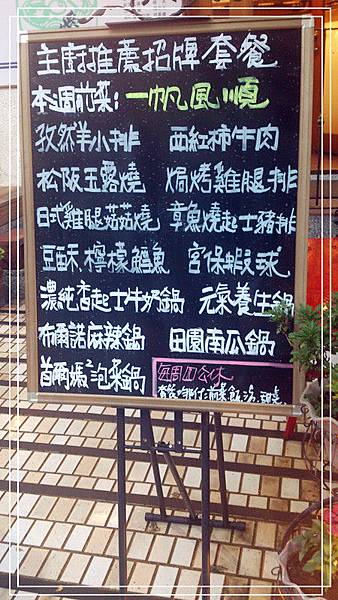 主廚推薦招牌套餐
本週前菜:一帆風順
孜然羊小排 西紅柿牛肉
松阪玉露燒 焗烤雞腿排
日式雞腿菇菇燒 章魚燒起士豬排
豆酥.檸檬鱈魚 宮保蝦球
濃純香起士牛奶鍋 元氣養生鍋
布爾諾麻辣鍋 田園南瓜鍋
首爾媽²泡菜鍋
每周四公休